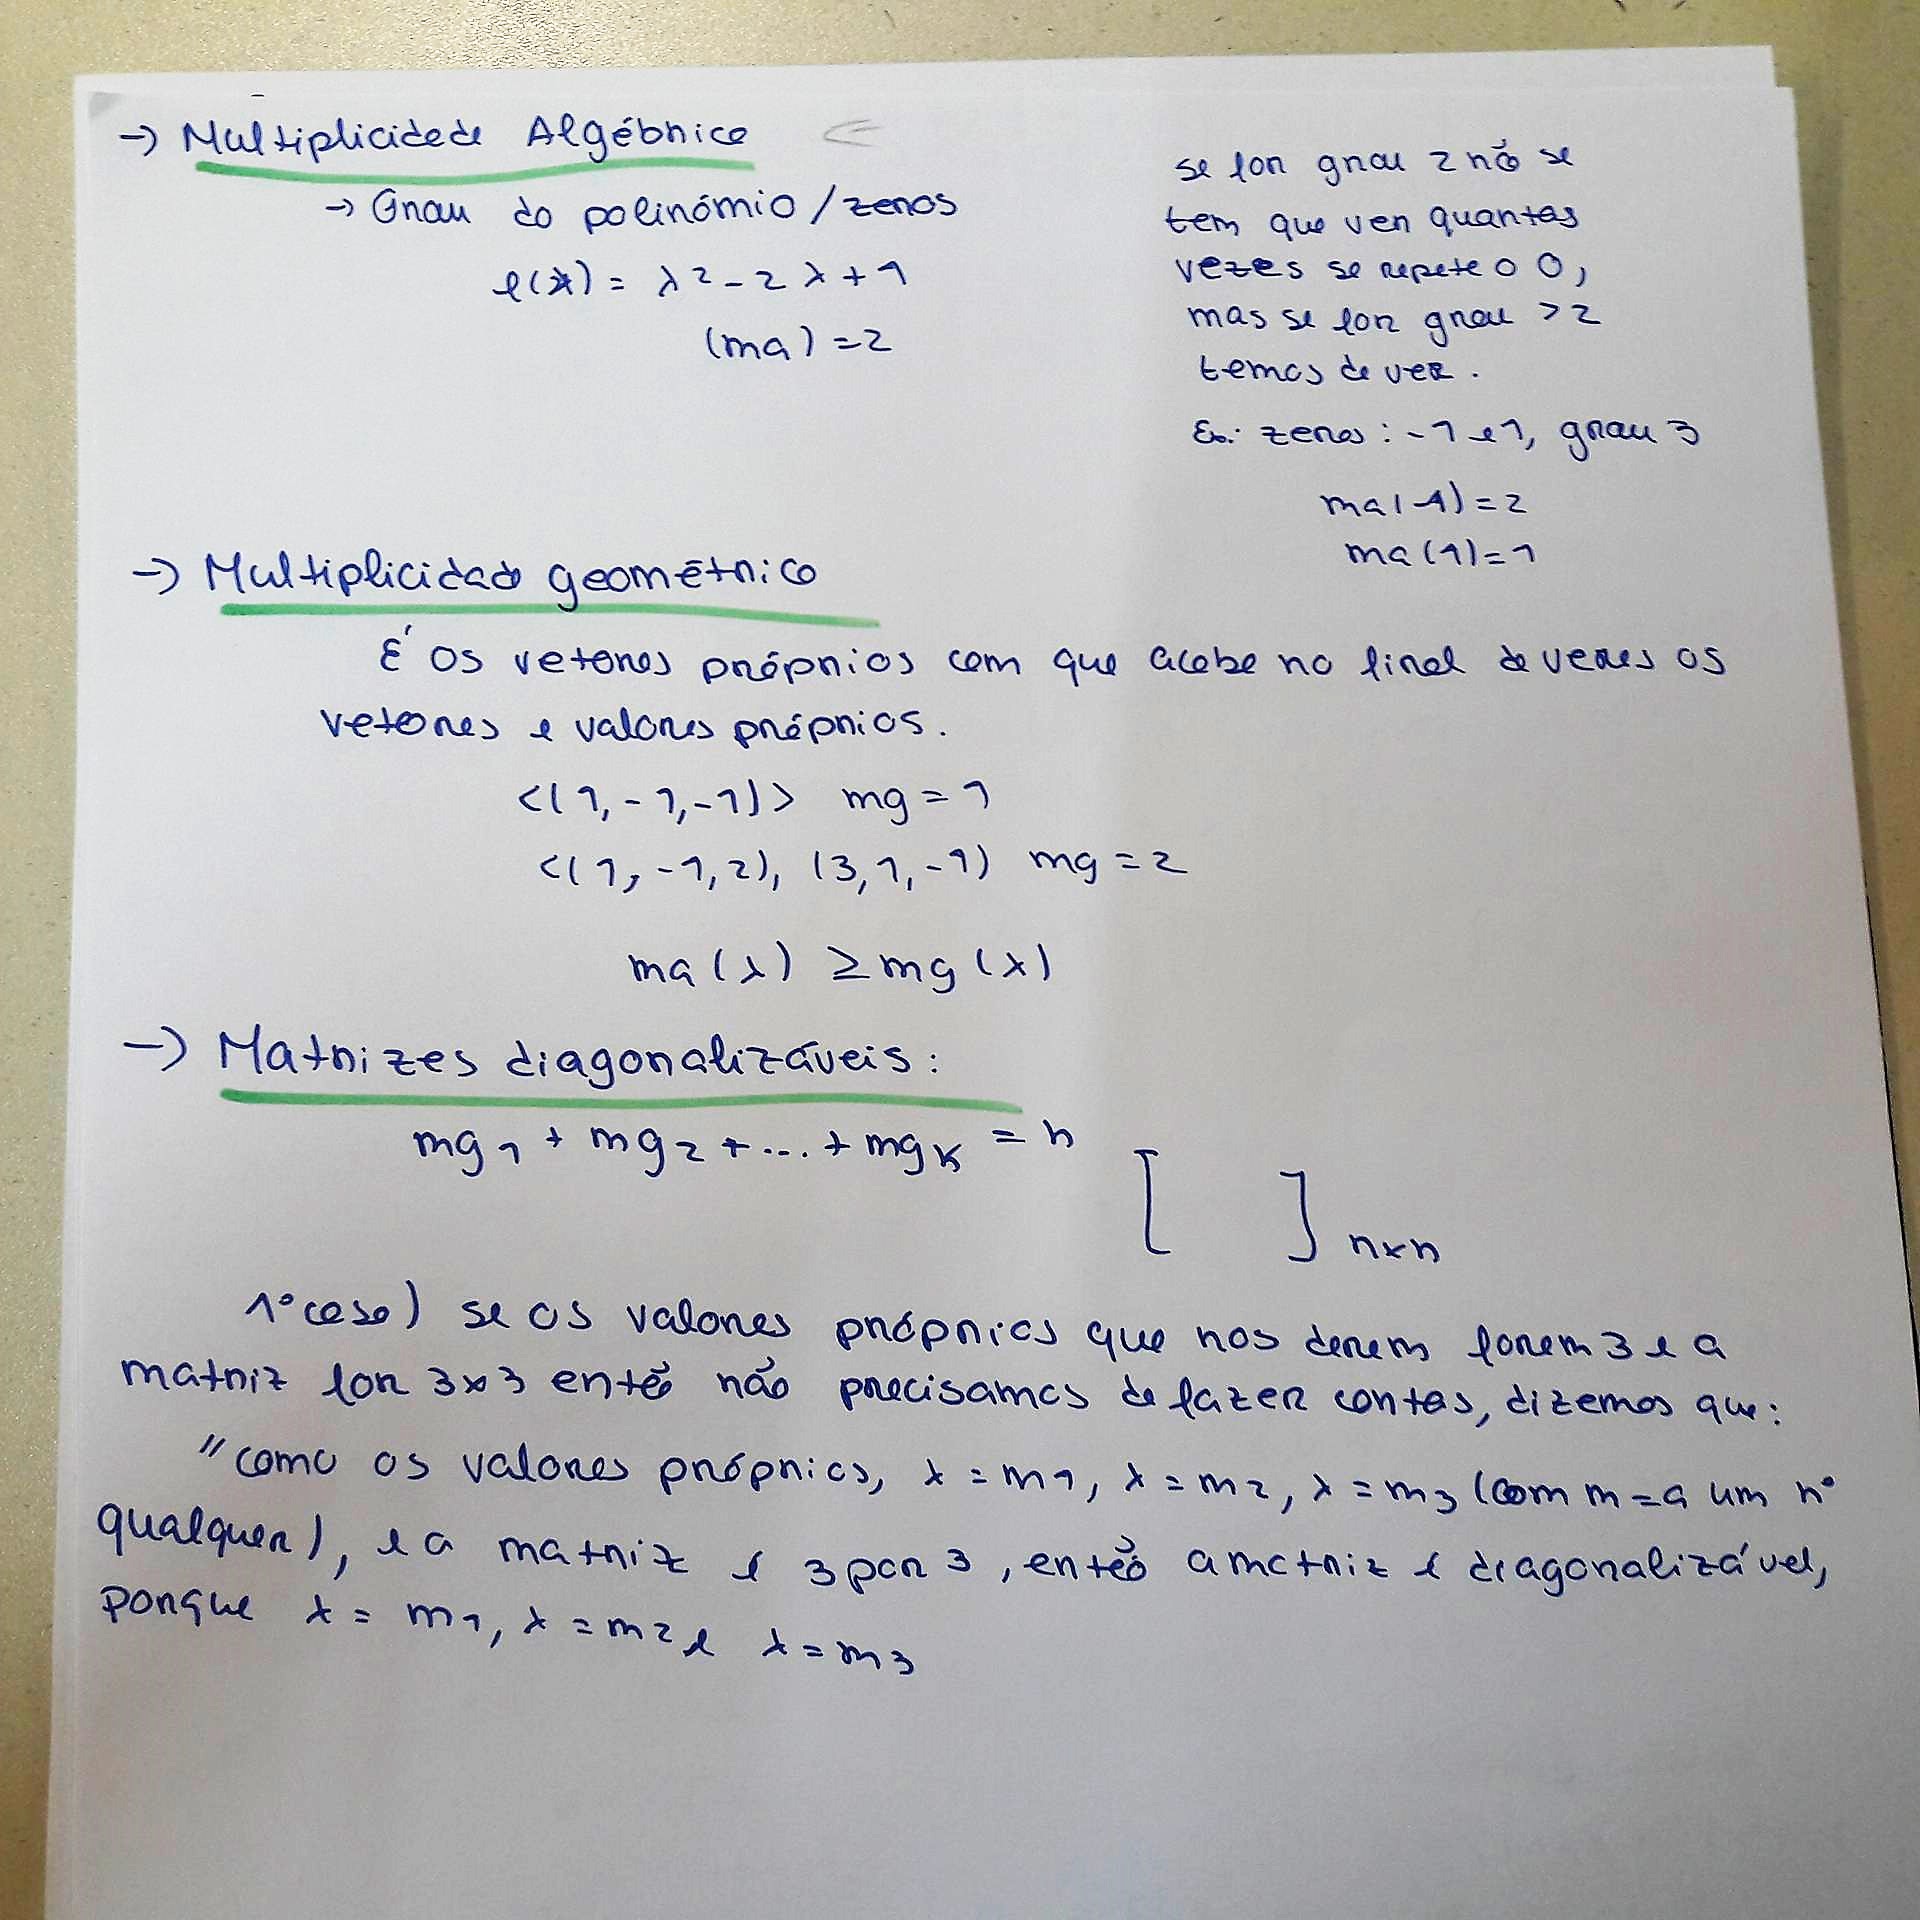 → Multiplicidade Algébrica
→ Grau do polinómio/zeros
l(λ) = λ² - 2λ + 1
(ma) = 2
se for grau 2 não se
tem que ver quantas
vezes se repete o 0,
mas se for grau >2
temos de ver.
Ex.: zeros: -1 e 1, grau 3
ma(-1) = 2
ma(1) = 1
→ Multiplicidade geométrico
É os vetores próprios com que acabe no final de veres os
vetores e valores próprios.
<(1, -1, -1)> mg = 1
<(1, -1, 2), (3, 1, -1) mg = 2
ma(λ) ≥ mg(λ)
→ Matrizes diagonalizáveis:
mg1 + mg2 + ... + mgk = n
[ ] n×n
1º caso) se os valores próprios que nos derem forem 3 e a
matriz for 3×3 então não precisamos de fazer contas, dizemos que:
"como os valores próprios, λ = m1, λ = m2, λ = m3 (com m = a um nº
qualquer), e a matriz é 3 por 3, então a matriz é diagonalizável,
porque λ = m1, λ = m2 e λ = m3